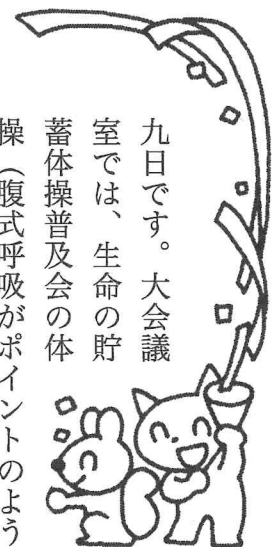 九日です。大会議
室では、生命の貯
蓄体操普及会の体
操（腹式呼吸がポイントのよう